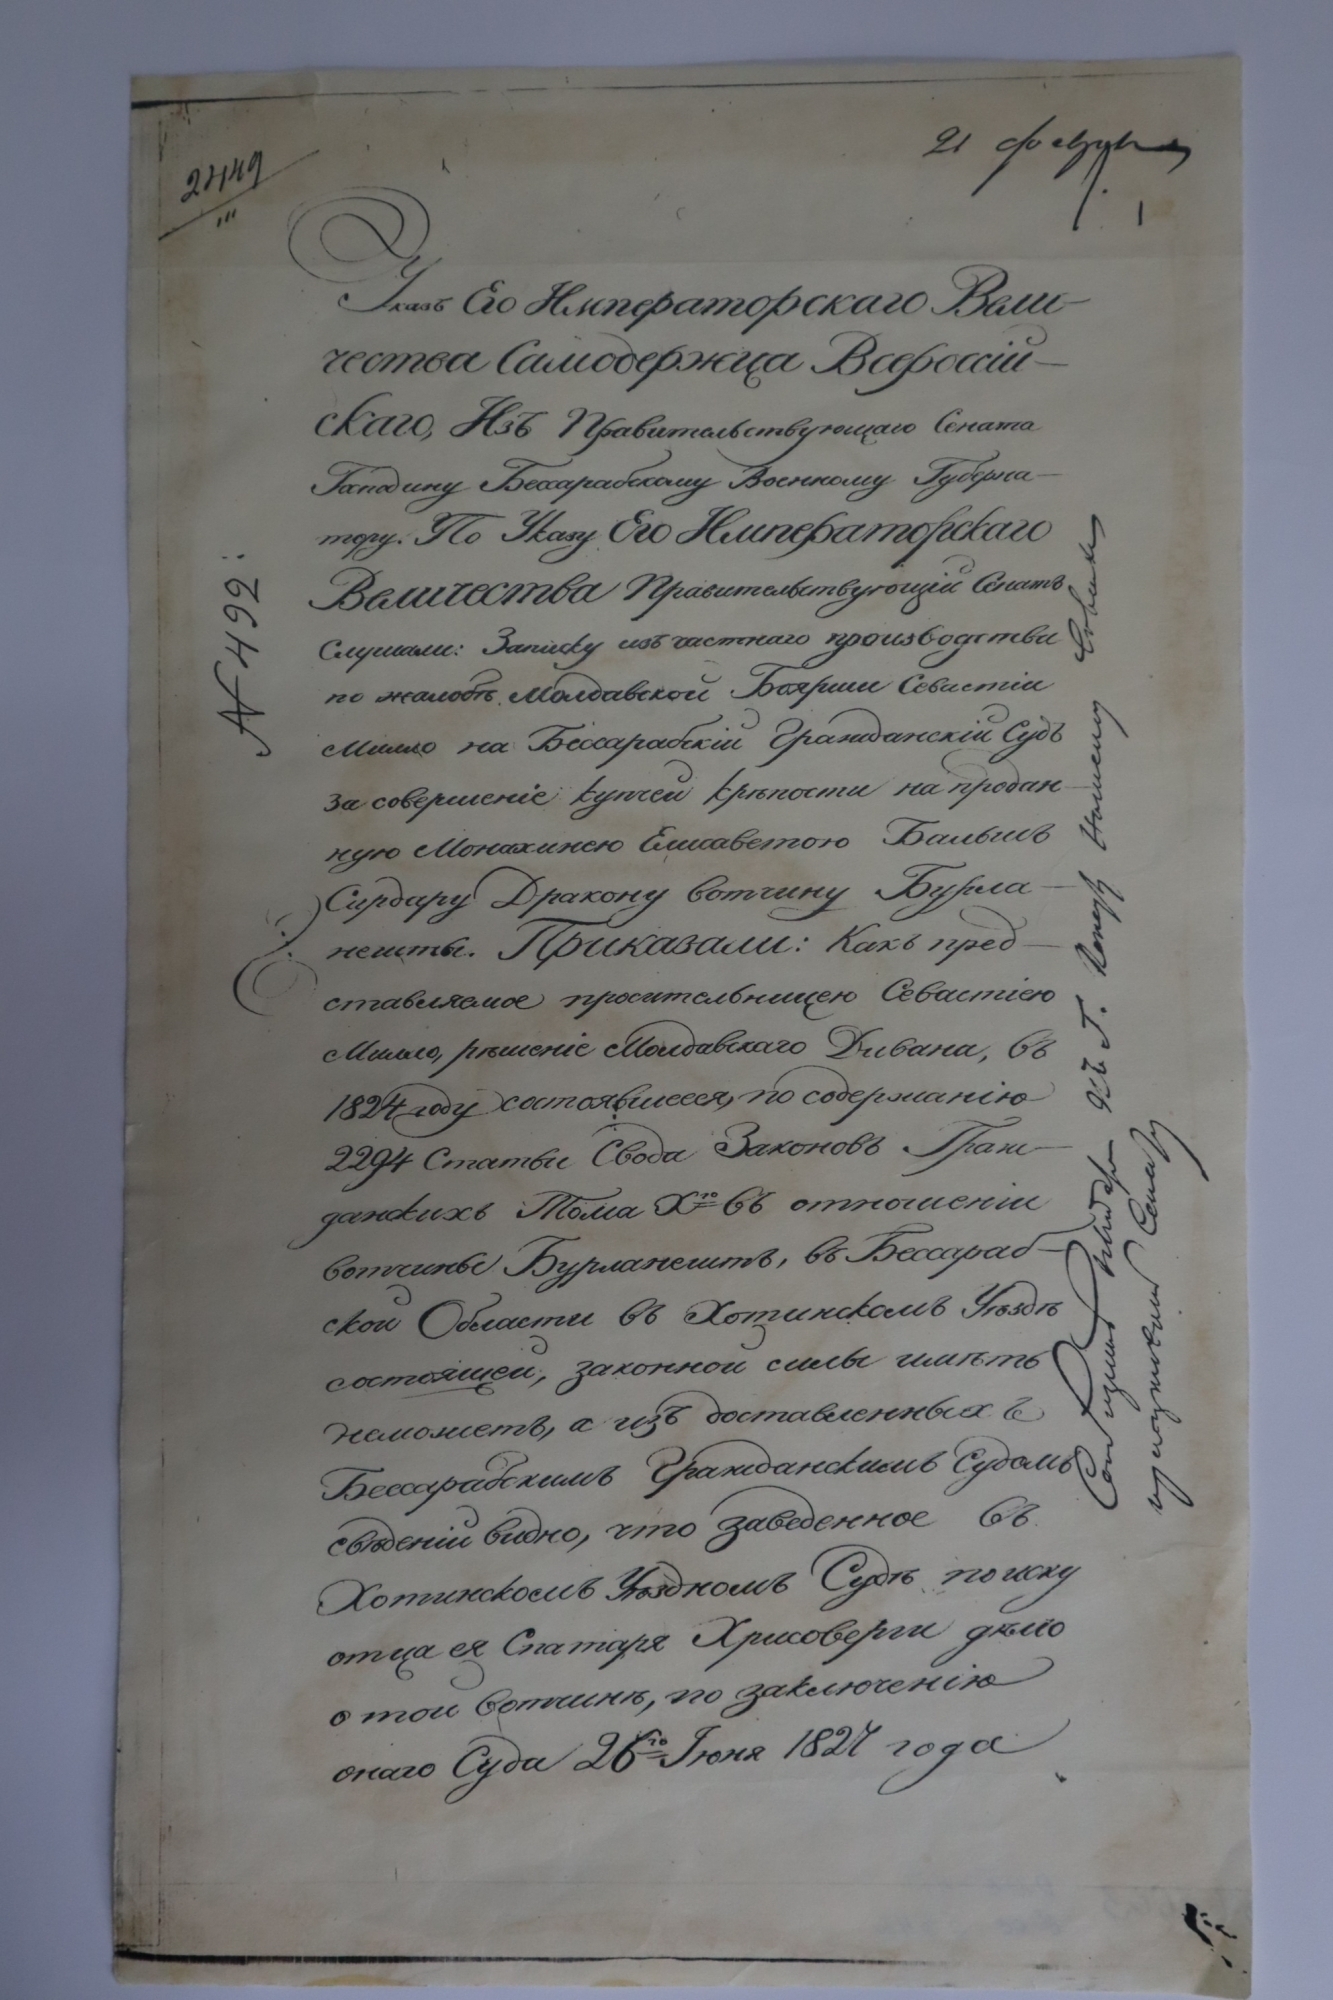 2449
21 февраля
1
Указъ Его Императорскаго Вели-
чества Самодержца Всероссій-
скаго, Изъ Правительствующаго Сената
Господину Бессарабскому Военному Губерна-
тору. По Указу Его Императорскаго
Величества Правительствующій Сенатъ
слушали: Записку изъ частнаго производства
по жалобѣ Молдавской Боярши Севастіи
Милло на Бессарабскій Гражданскій Судъ
за совершеніе купчей крѣпости на продан-
ную Монахинею Елисаветою Бальшъ
Сардару Дракону вотчину Бурла-
нешты. Приказали: Какъ пред-
ставляемое просительницею Севастіею
Милло, рѣшеніе Молдавскаго Дивана, въ
1824 году состоявшееся, по содержанію
2294 Статьи Свода Законовъ Граж-
данскихъ Тома Xго въ отношеніи
вотчины Бурланештъ, въ Бессараб-
ской Области въ Хотинскомъ Уѣздѣ
состоящей, законной силы имѣть
неможетъ, а изъ доставленныхъ
Бессарабскимъ Гражданскимъ Судомъ
свѣденій видно, что заведенное въ
Хотинскомъ Уѣздномъ Судѣ по иску
отца ея Спатаря Хрисоверги дѣло
о той вотчинѣ, по заключенію
онаго Суда 26го Іюня 1827 года
N 492: